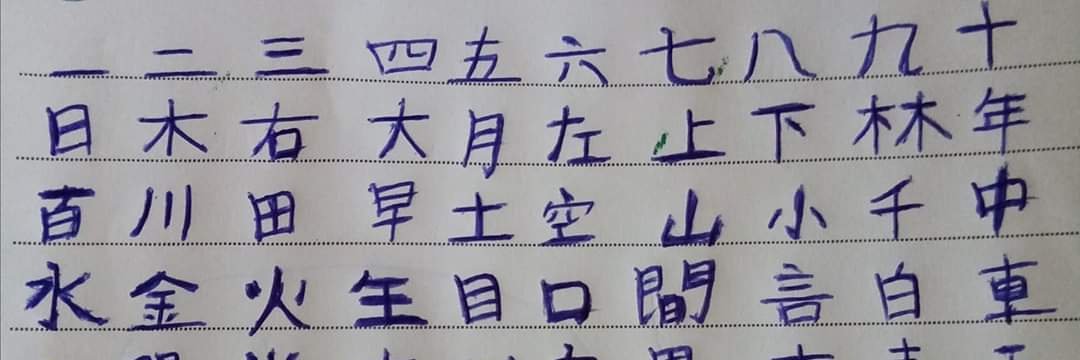 一 二 三 四 五 六 七 八 九 十
日 木 右 大 月 左 上 下 林 年
百 川 田 早 土 空 山 小 千 中
水 金 火 生 目 口 間 言 白 車